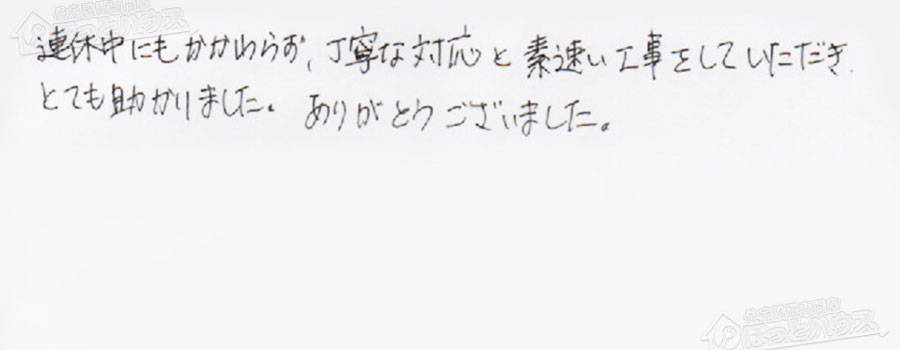 連休中にもかかわらず、丁寧な対応と素速い工事をしていただき、
とても助かりました。ありがとうございました。
住宅設備専門店
ほっとハウス
住宅設備専門店
ほっとハウス